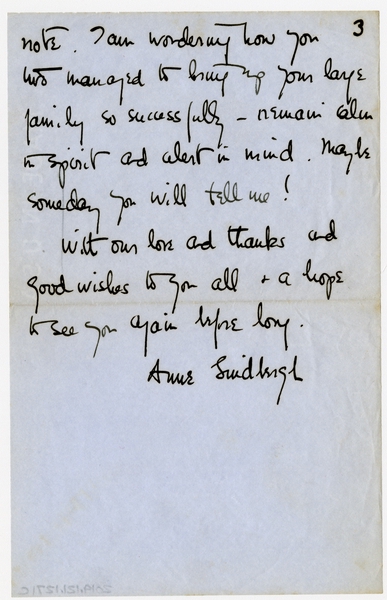 3
note. I am wondering how you
two managed to bring up your large
family so successfully – remain calm
in spirit and alert in mind. Maybe
someday you will tell me!
With our love and thanks and
good wishes to you all + a hope
to see you again before long.
Anne Lindbergh
2019.121.1271c